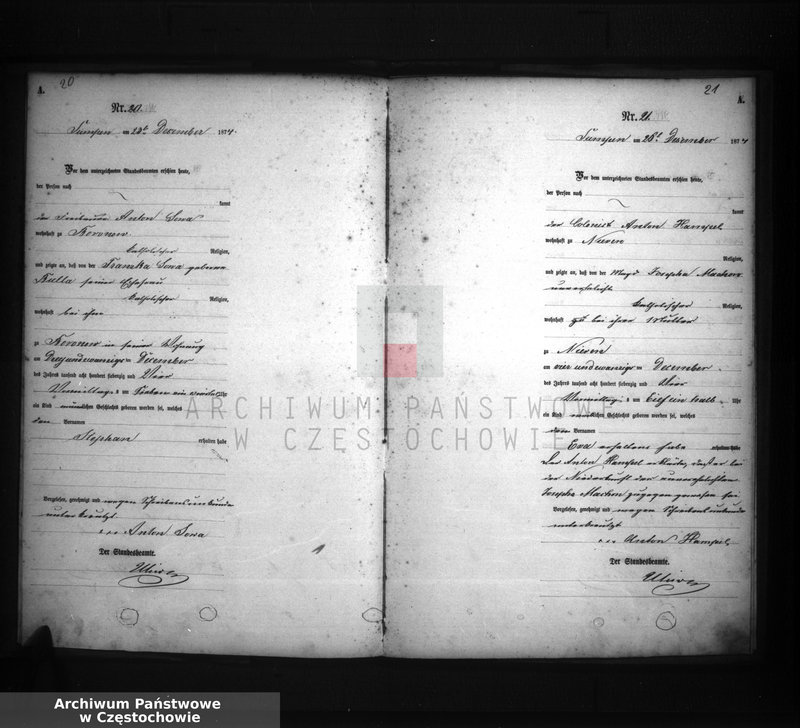 20
A.
Nr. 20.
am 23ten December 1874.
Vor dem unterzeichneten Standesbeamten erschien heute,
der Person nach
kannt
der Anton Sowa
wohnhaft zu
katholischer Religion,
und zeigte an, daß von der Franzka Sowa geborene
Kulla seiner Ehefrau
katholischer Religion,
wohnhaft bei ihm
zu in seiner Wohnung
am Dreiundzwanzigsten December
des Jahres tausend acht hundert siebenzig und Vier
Vormittags um Uhr
ein Kind männlichen Geschlechts geboren worden sei, welches
den Vornamen
Stephan erhalten habe
Vorgelesen, genehmigt und wegen Schreibensunkunde
unterkreuzt
+++ Anton Sowa
Der Standesbeamte.
21
A.
Nr. 21.
am December 1874
Vor dem unterzeichneten Standesbeamten erschien heute,
der Person nach
kannt
der Colonist Anton Hampel
wohnhaft zu
Religion,
und zeigte an, daß von der Magd Josepha
unverehelicht
katholischer Religion,
wohnhaft bei ihrer Mutter
zu
am vier und zwanzigsten December
des Jahres tausend acht hundert siebenzig und Vier
Vormittags um Uhr
ein Kind Geschlechts geboren worden sei, welches
Vornamen
Eva erhalten habe
Der Anton Hampel erklärte, daß er bei
der Niederkunft der unverehelichten
Josepha zugegen gewesen sei
Vorgelesen, genehmigt und wegen Schreibensunkunde
unterkreuzt
+++ Anton Hampel
Der Standesbeamte.
ARCHIWUM PAŃSTWOWE
W CZĘSTOCHOWIE
Archiwum Państwowe
w Częstochowie